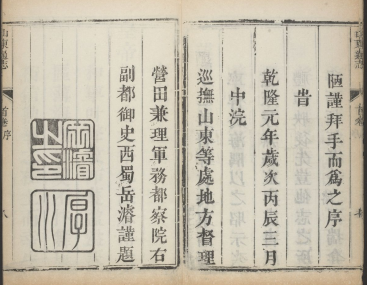 陋謹拜手而為之序
旹
乾隆元年歲次丙辰三月
中浣
巡撫山東等處地方督理
營田兼理軍務都察院右
副都御史西蜀岳濬謹題
岳濬之印
山東通志
首卷序
八